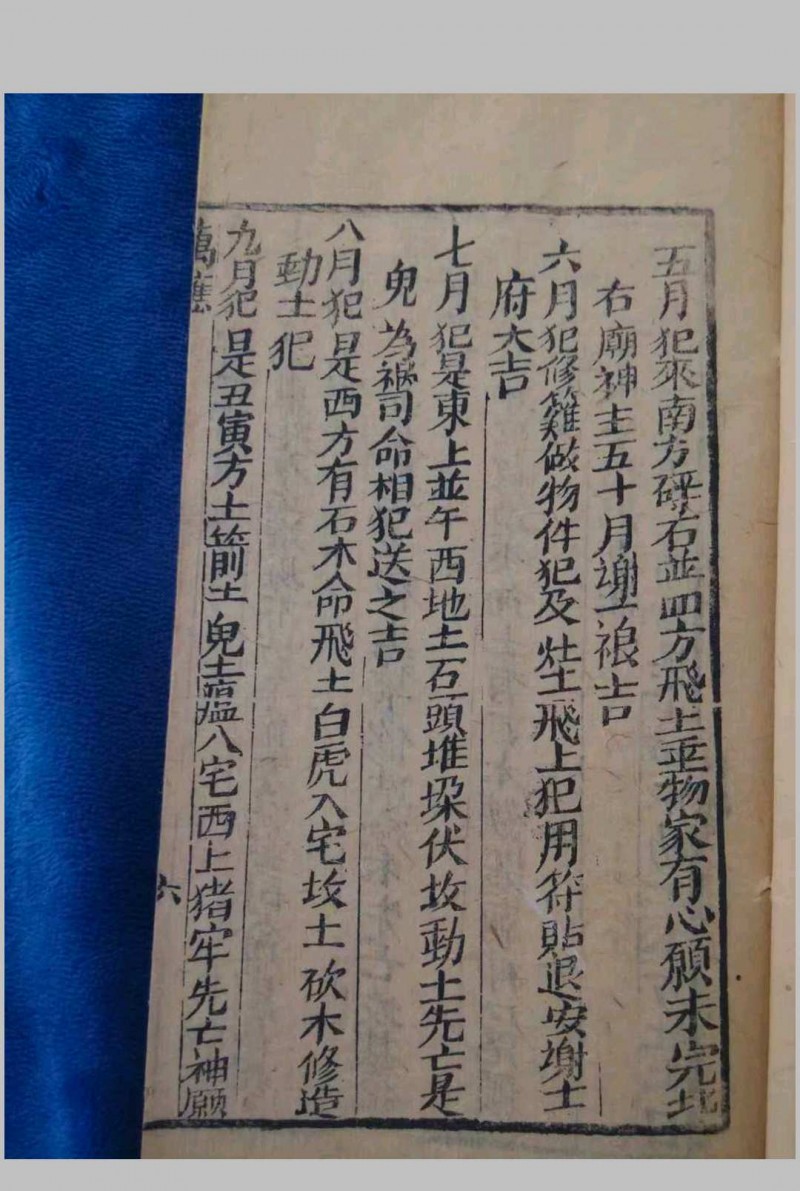 五月犯來南方碑石並四方飛土並物家有心願未完北
右廟神主五十月謝一禳吉
六月犯修籬做物件犯及灶土飛上犯用符貼退安謝土
府大吉
七月犯是東上並午酉地土石頭堆垛伏坟動土先亡是
鬼為禍司命相犯送之吉
八月犯是西方有石木命飛土白虎入宅坟土砍木修造
動土犯
九月犯是丑寅方土箭土鬼土瘟入宅西上猪牢先亡神願
萬應
六